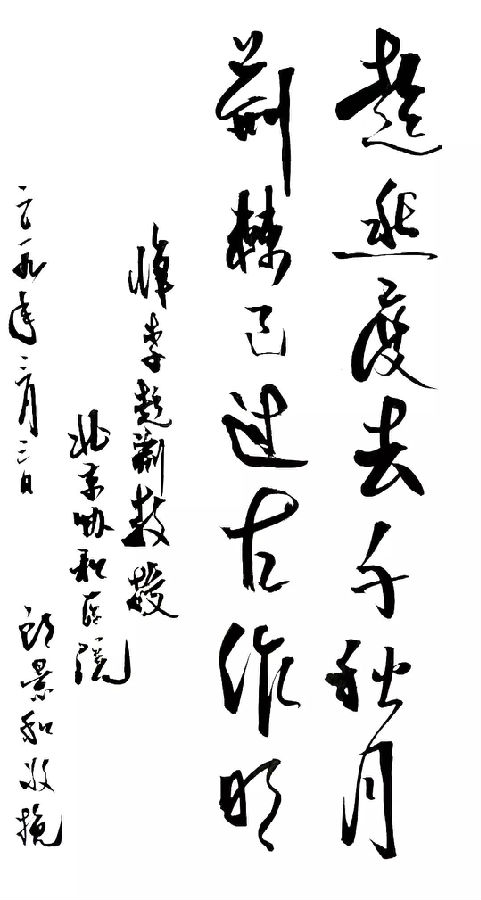 超然度去千秋月
荆棘已过古作明
悼李超荆教授
北京协和医院
二〇一九年二月三日 郎景和敬挽